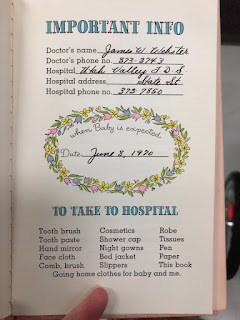 IMPORTANT INFO
Doctor's name James W. Webster
Doctor's phone no. 373-2743
Hospital Utah Valley L.D.S.
Hospital address State St.
Hospital phone no. 373-7850
when Baby is expected
Date June 8, 1970
TO TAKE TO HOSPITAL
Tooth brush Cosmetics Robe
Tooth paste Shower cap Tissues
Hand mirror Night gowns Pen
Face cloth Bed jacket Paper
Comb, brush Slippers This book
Going home clothes for baby and me.